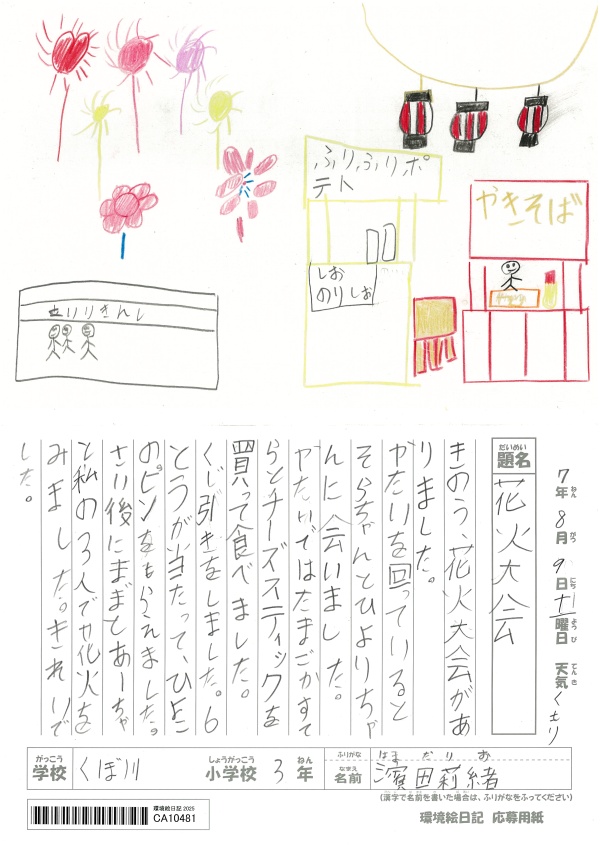 ふりふりポ
テト
しお
のりしお
やきそば
立入りきんし
7年 8月 9日 土曜日 天気 くもり
ねん がつ にち ようび てんき
だいめい
題名 花火大会
きのう、花火大会があ
りました。
やたいを回っていると
そらちゃんとひよりちゃ
んに会いました。
やたいではたまごかすて
らとチーズスティックを
買って食べました。
くじ引きをしました。6
とうが当たって、ひよこ
のピンをもらえました。
さい後にままとあーちゃ
と私の3人で花火を
みました。きれいで
した。
がっこう しょうがっこう ねん
学校 くぼ川 小学校 3年
ふりがな はまだ りお
なまえ
名前 濱田莉緒
(漢字で名前を書いた場合は、ふりがなをふってください)
環境絵日記 2025
CA10481
環境絵日記 応募用紙